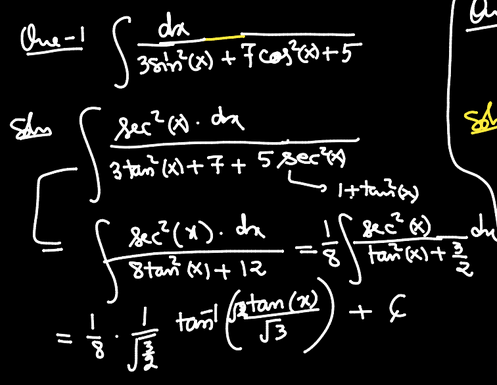 Que-1 ∫ dx / (3sin²(x) + 7cos²(x) + 5)
Soln ∫ sec²(x) · dx / (3tan²(x) + 7 + 5 sec²(x))
→ 1 + tan²(x)
= ∫ sec²(x) · dx / (8tan²(x) + 12) = 1/8 ∫ sec²(x) / (tan²(x) + 3/2) dx
= 1/8 · 1/√(3/2) tan⁻¹ (√2 tan(x) / √3) + C
Qu
Sol